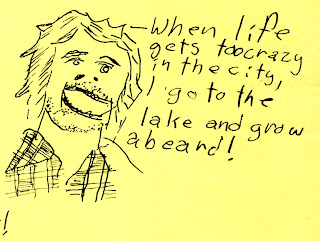 When life
gets too crazy
in the city,
I go to the
lake and grow
a beard!
!